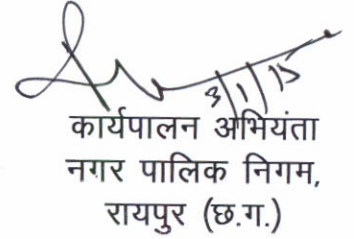 3/1/15
कार्यपालन अभियंता
नगर पालिक निगम,
रायपुर (छ.ग.)